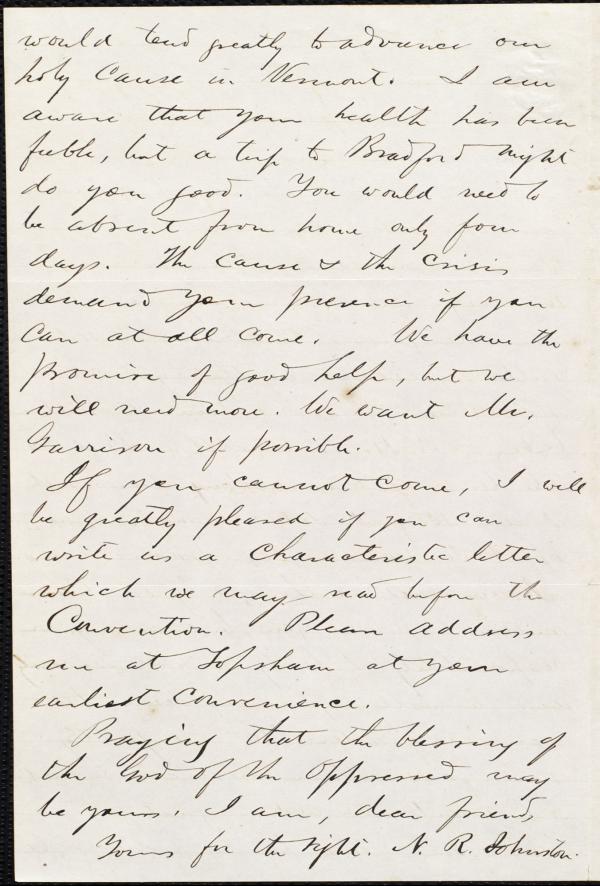 would tend greatly to advance our
holy Cause in Vermont. I am
aware that your health has been
feeble, but a trip to Bradford might
do you good. You would need to
be absent from home only four
days. The Cause & the Crisis
demand your presence if you
can at all come. We have the
promise of good help, but we
will need more. We want Mr.
Garrison if possible.
If you cannot come, I will
be greatly pleased if you can
write us a Characteristic letter
which we may read before the
Convention. Please address
me at Topsham at your
earliest convenience.
Praying that the blessing of
the God of the oppressed may
be yours. I am, dear friend,
Yours for the right. N. R. Johnston.